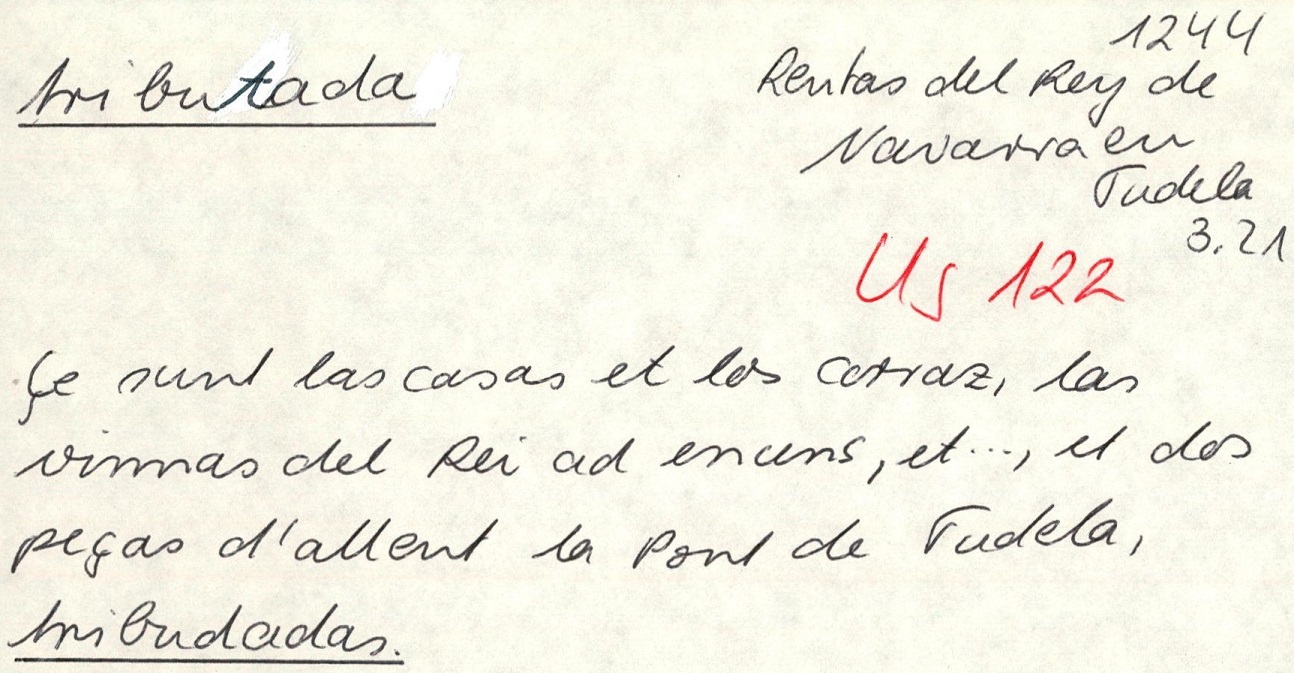 tributada
1244
Rentas del Rey de
Navarra en
Tudela
3.21
Us 122
Çe sunt las casas et los corraz, las
vinnas del Rei ad encens, et..., et dos
peças d'allent la Pont de Tudela,
tribudadas.